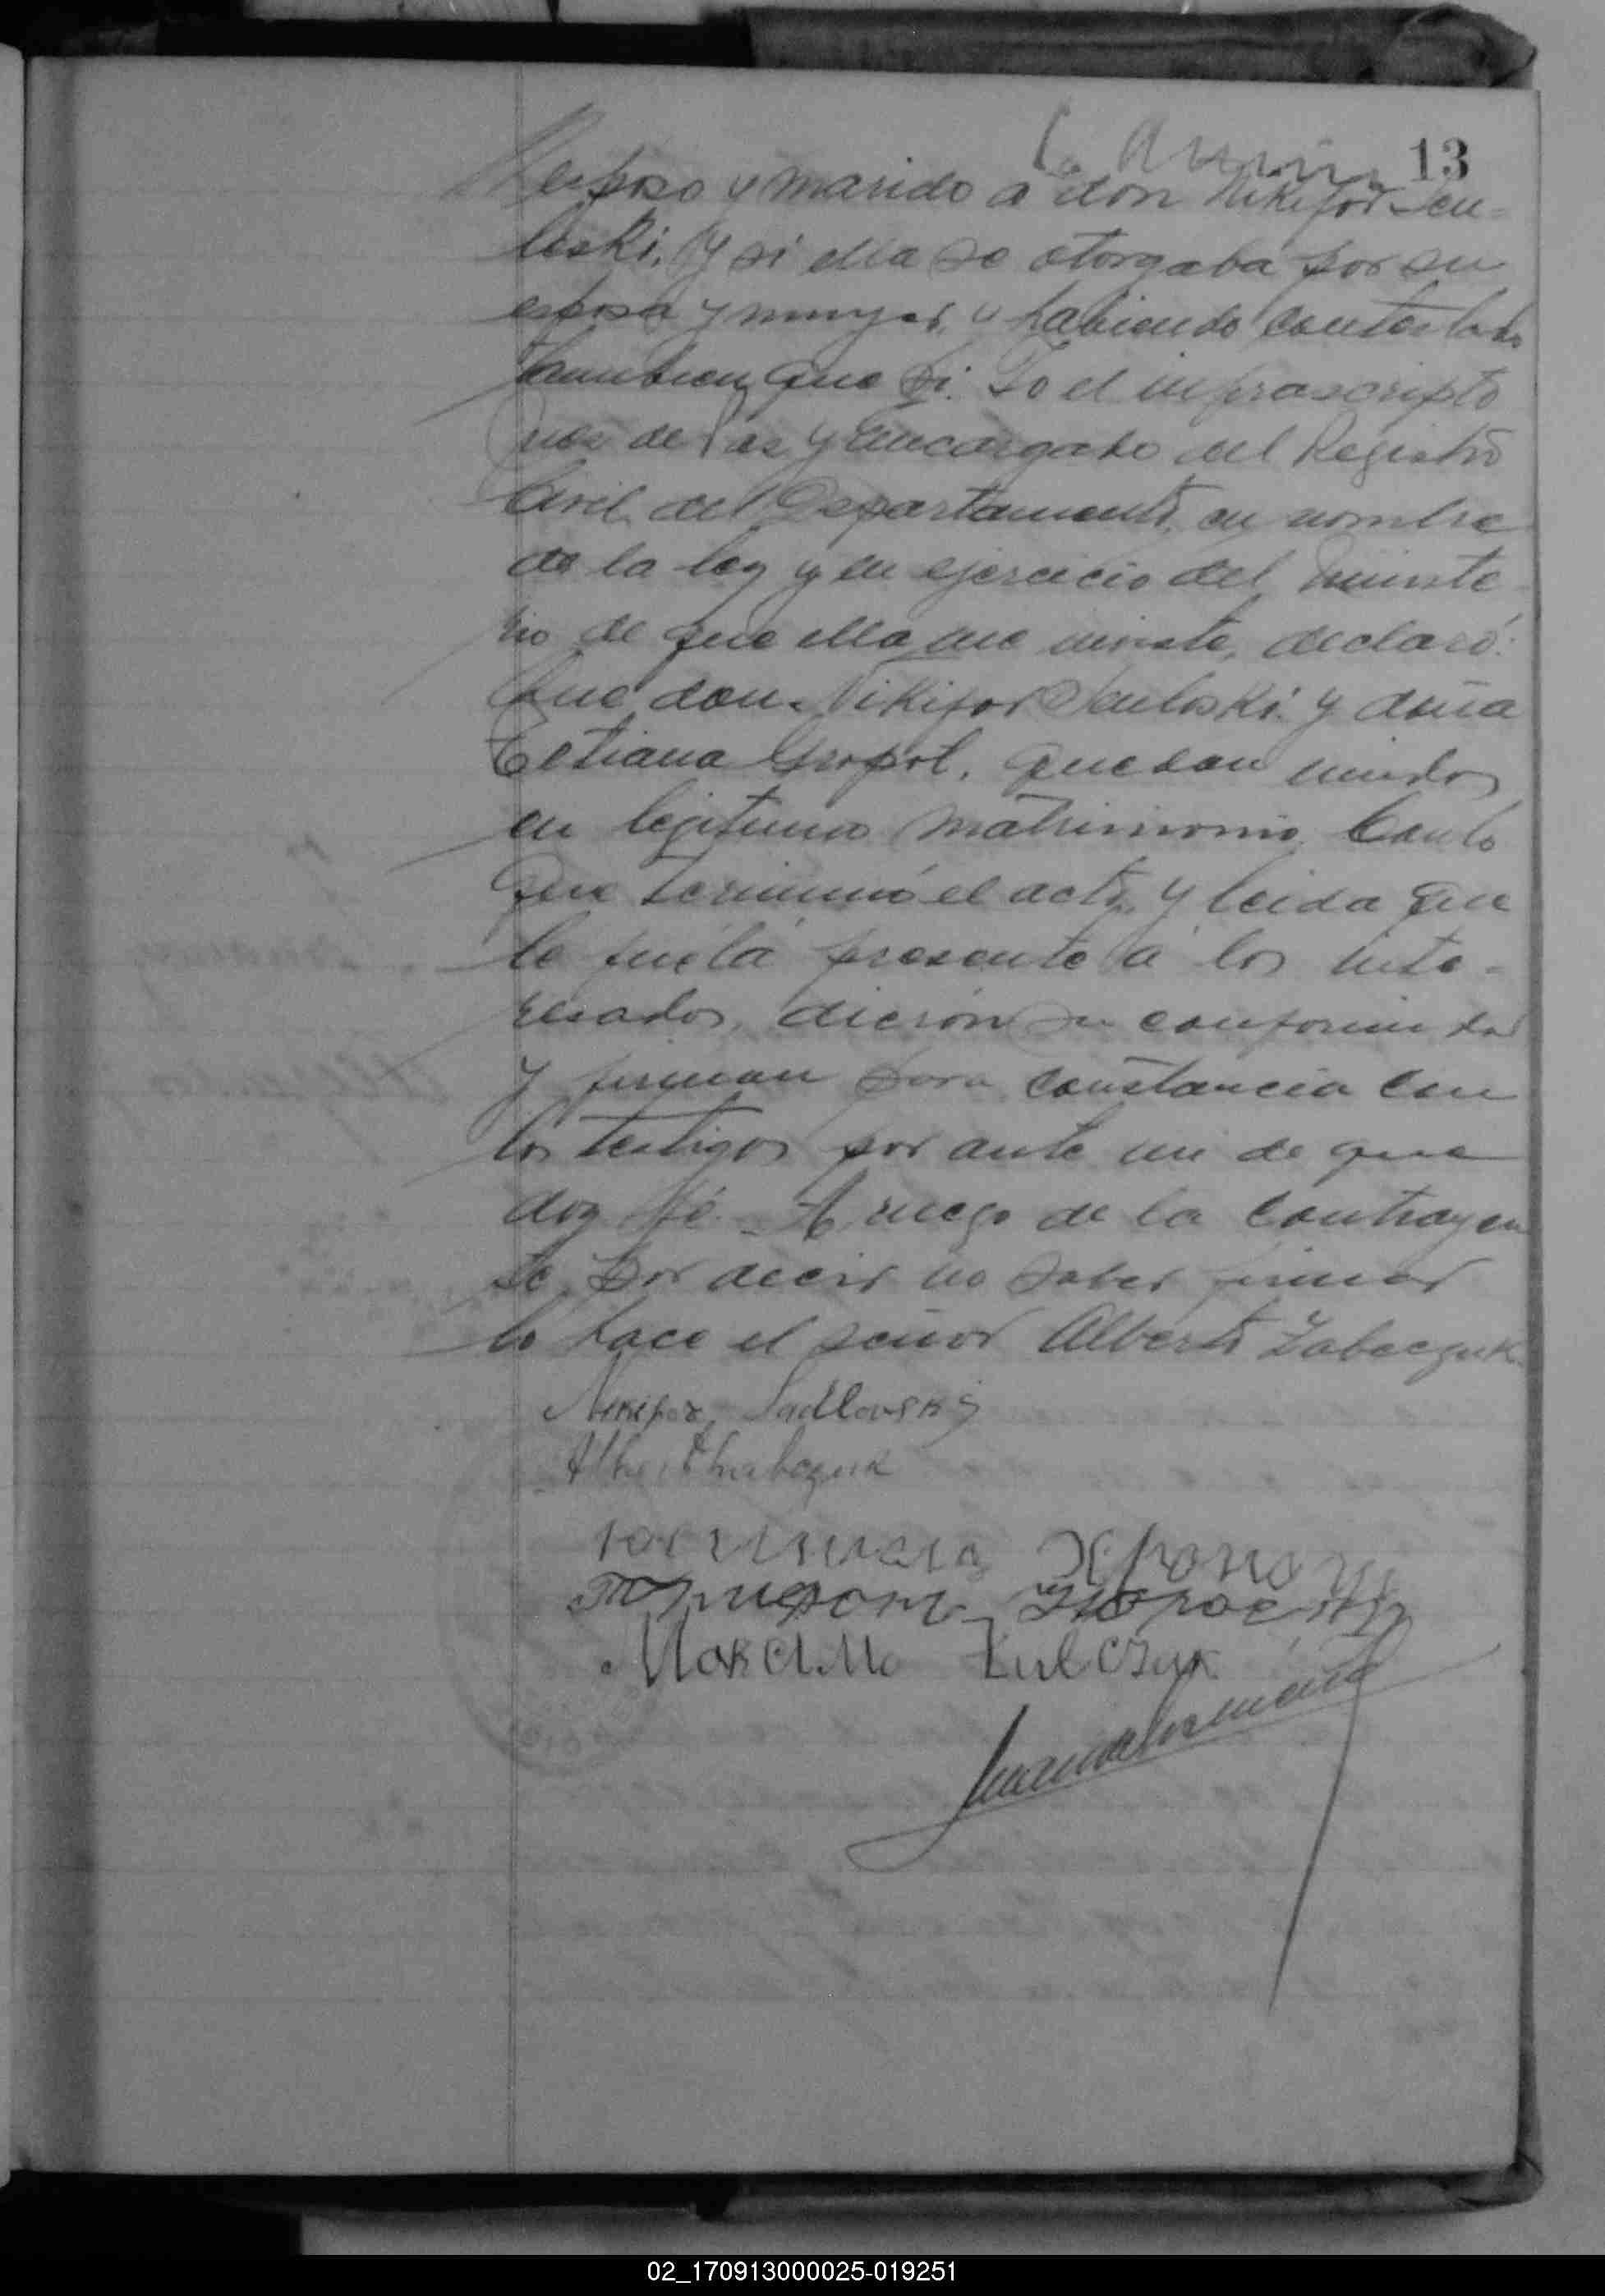 13
esposo y marido a don Nikifor Sen-
loski, Y si ella se otorgaba por su
esposa y mujer, y habiendo contestado
tambien que si. Yo el infrascripto
Juez de Paz y Encargado del Registro
Civil del Departamento, en nombre
de la ley y en ejercicio del ministe
rio de que ella me inviste, declaró:
Que don Nikifor Senloski y doña
Tetiana Gropol, quedan unidos
en legitimo matrimonio. Con lo
que terminó el acto, y leida que
le fué la presente a los inte-
resados, dieron su conformidad
y firman para constancia con
los testigos por ante mi de que
doy fé. A ruego de la contrayen
te, por decir no saber firmar
lo hace el señor Alberto Zabaczuk
Sadlovskij
Albert
02_170913000025-019251